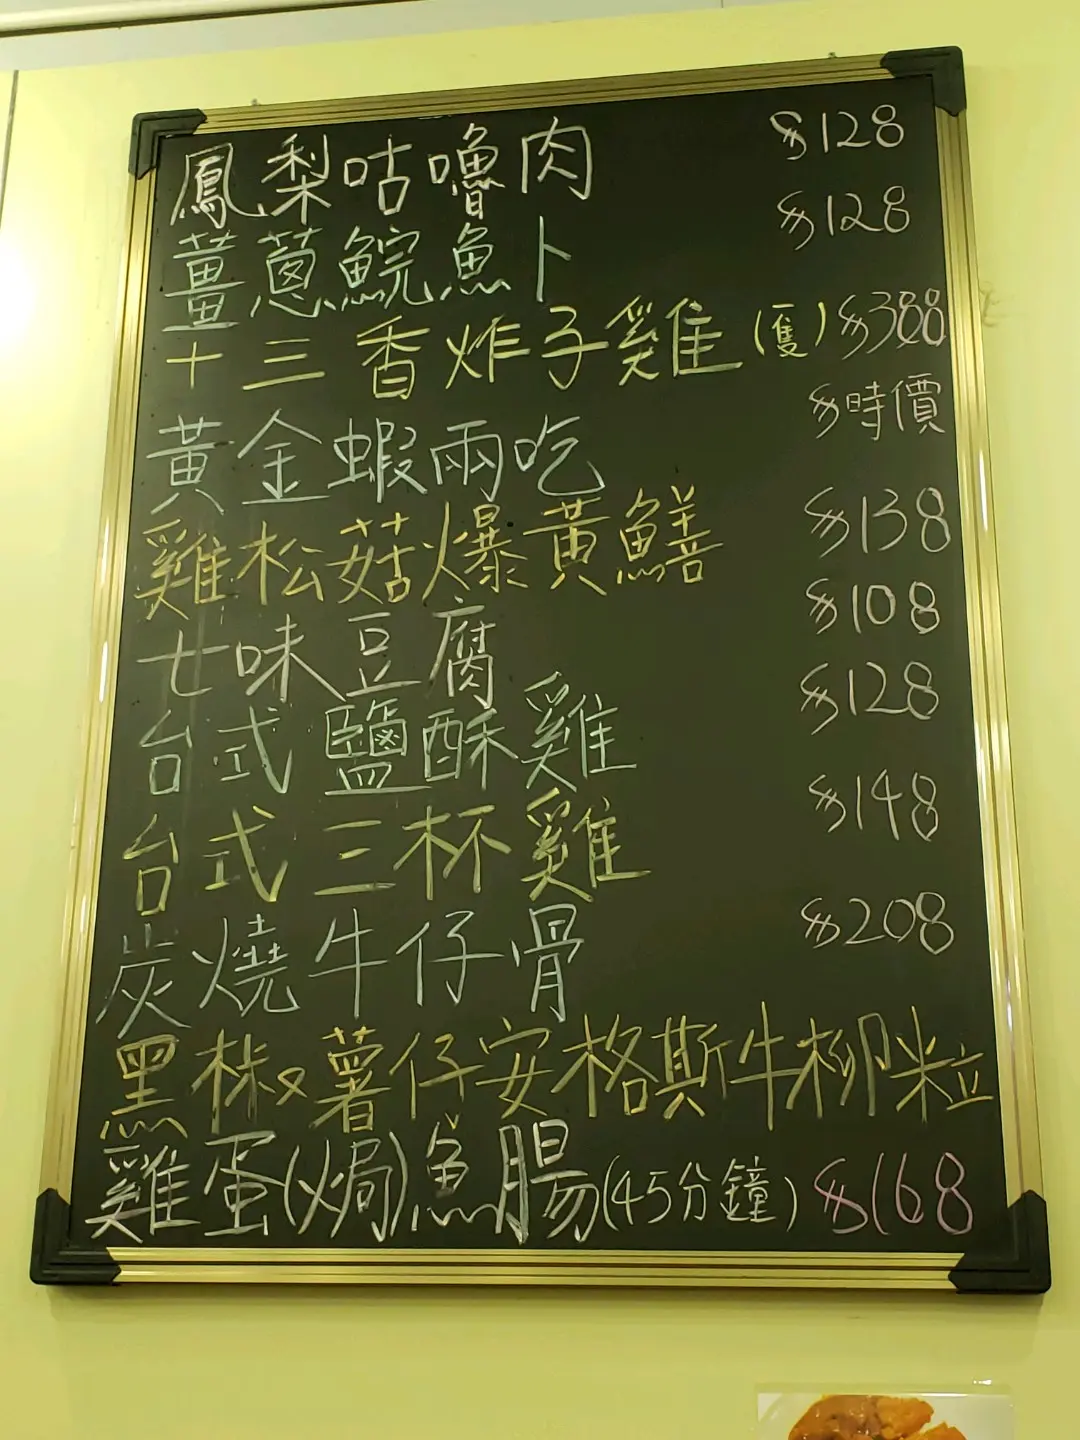 鳳梨咕嚕肉 $128
薑蔥鯇魚卜 $128
十三香炸子雞(隻) $388
黃金蝦兩吃 $時價
雞松菇爆黃鱔 $138
七味豆腐 $108
台式鹽酥雞 $128
台式三杯雞 $148
炭燒牛仔骨 $208
黑椒薯仔安格斯牛柳粒
雞蛋(焗)魚腸(45分鐘) $168